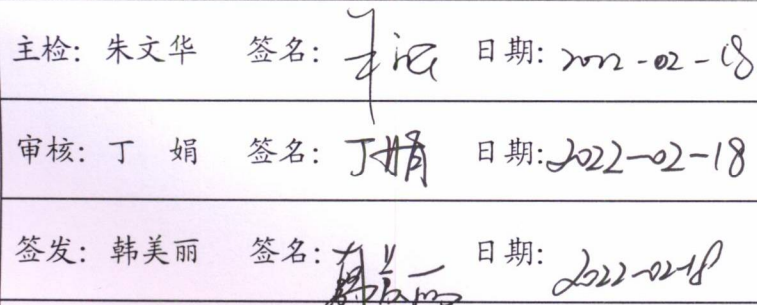 主检: 朱文华 签名: 日期: 2022-02-18
审核: 丁 娟 签名: 丁娟 日期: 2022-02-18
签发: 韩美丽 签名: 韩美丽 日期: 2022-02-18